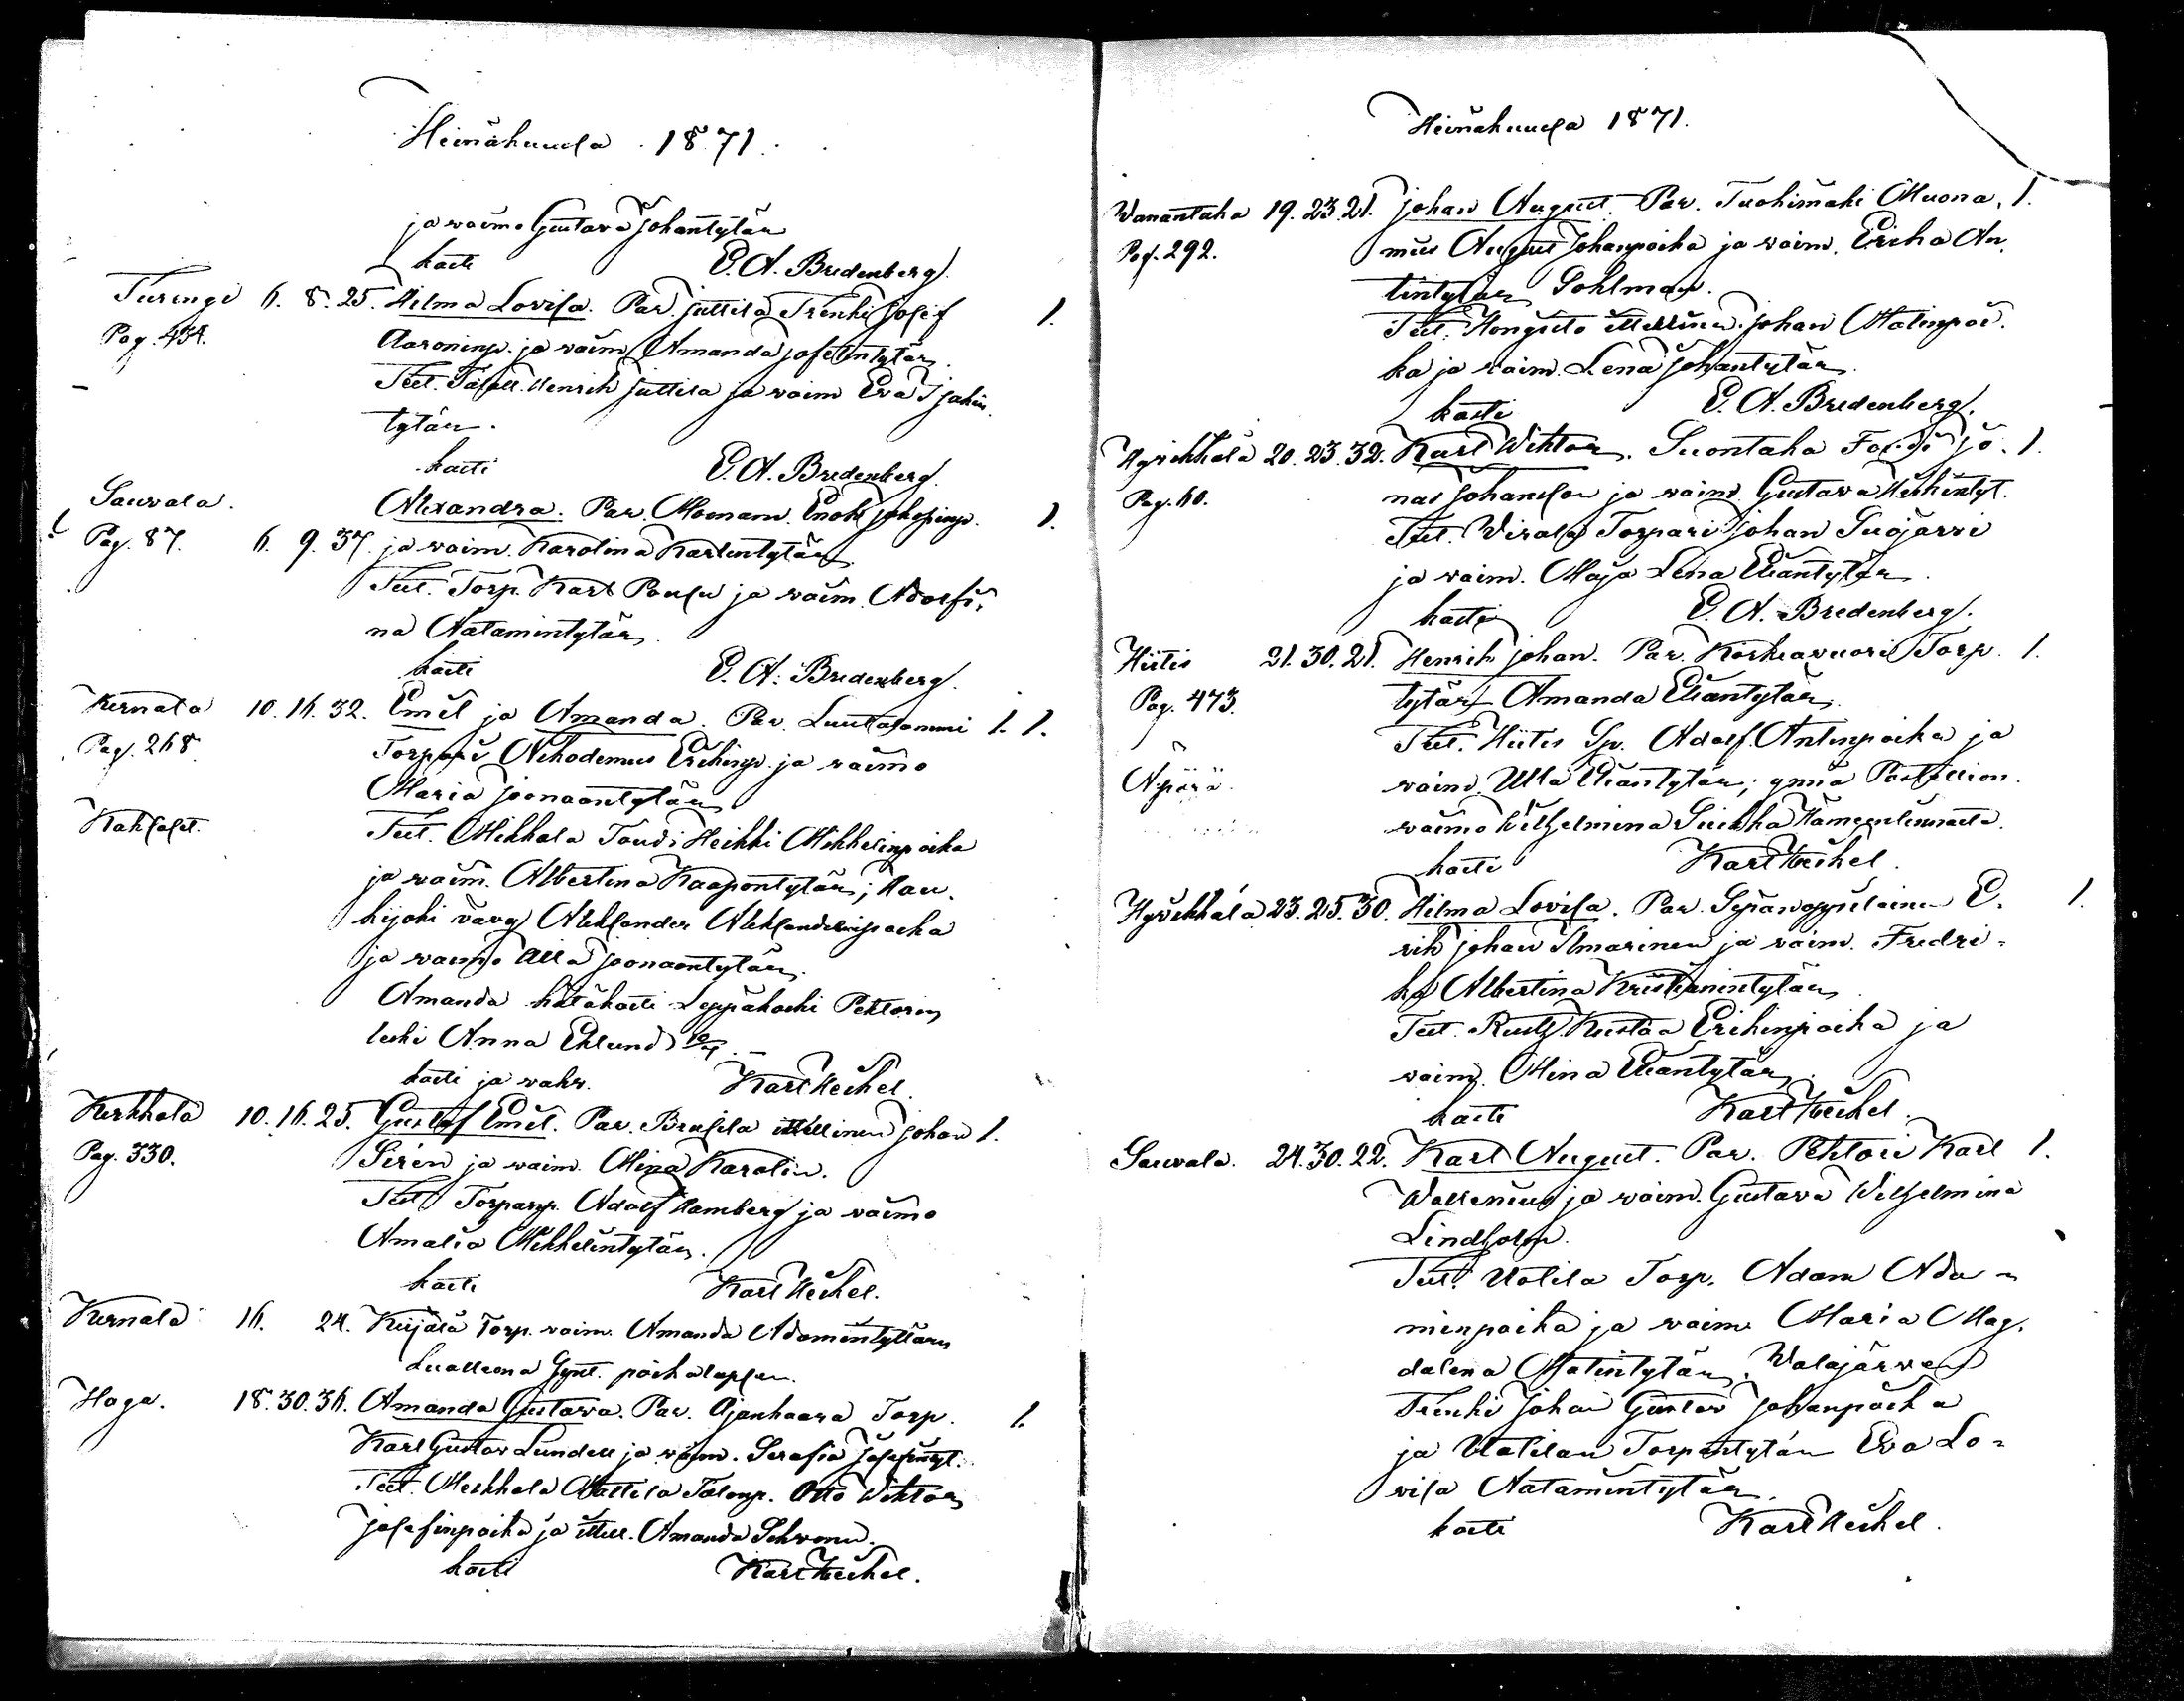 Heinäkuusa 1871.
ja waimo Gustava Johantytär
kasti E. A. Bredenberg.
Turengi 6. 8. 25. Hilma Lovisa. Par. Juttila Trenki Josef 1.
Pag. 434. Aaroninp. ja waim. Amanda Josefintytär.
Test. Henrik Juttila ja waim Eva
tytär.
kasti E. A. Bredenberg.
Sauvala. Alexandra. Par. Enok 1.
Pag. 87. 6. 9. 37. ja waim. Karolina Karlintytär
Test. Torp. Karl ja waim. Adolfi-
na Aatamintytär
kasti E. A. Bredenberg.
Kernala 10. 16. 32. Emil ja Amanda. Par. Luutasammi 1. 1.
Pag. 268. Torpari Nikodemus Erikinp. ja waimo
Maria Joonaantytär
Kaksoset. Test. Mikkola Heikki Mikkelinpoika
ja waim. Albertina Kaapontytär; Rau-
hijoki vävy Aleksander Aleksanderinpoika
ja waimo Ulla Joonaantytär.
Amanda hätäkasti Leppäkoski Pehtorin
leski Anna Eklund
kasti ja wahw. Karl Heikel.
Kerkkola 10. 16. 25. Gustaf Emil. Par. Brusila itsellinen Johan 1.
Pag. 330. Sirén ja waim. Mina Karolin.
Test. Torparip. Adolf Hamberg ja waimo
Amalia Mikkelintytär.
kasti Karl Heikel.
Kernala 16. 24. Torp. waim. Amanda Adamintyttären
Lualleena Synt. poikalapsen.
Haga. 18. 30. 36. Amanda Gustava. Par. Ojanhaara Torp. 1.
Karl Gustav Lundell ja waim. Serafia Josefintyt.
Test. Mattila Talonp. Otto Wihtor
Josefinpoika ja itsell. Amanda
kasti Karl Heikel.
Heinäkuusa 1871.
Wanantaka 19. 23. 21. Johan August. Par. Tuohimäki Muona- 1.
Pag. 292. mies August Johanpoika ja waim. Erika An-
tintytär Sohlman.
Test. itsellinen Johan Matinpoi-
ka ja waim. Lena Johantytär.
kasti E. A. Bredenberg.
Hyvikkälä 20. 23. 32. Karl Wihtor. Suontaka Jo- 1.
Pag. 60. nas Johansson ja waim. Gustava
Test. Wirala Torpari Johan Suojärvi
ja waim. Maja Lena Eliantytär.
kasti E. A. Bredenberg.
Hiitis 21. 30. 21. Henrik Johan. Par. Korkeavuori Torp. 1.
Pag. 473. tytär Amanda Eliantytär.
Test. Hiitis Adolf Antinpoika ja
Äpärä. waim. Ulla Eliantytär; ynnä Postillion.
waimo Wilhelmina Hämeenlinnasta.
kasti Karl Heikel.
Hyvikkälä 23. 25. 30. Hilma Lovisa. Par. Sepänoppilainen E- 1.
rik Johan Ilmarinen ja waim. Fredri-
ka Albertina Kristianintytär
Test. Kustaa Erikinpoika ja
waim. Mina Eliantytär.
kasti Karl Heikel.
Sauvala. 24. 30. 22. Karl August. Par. Pehtori Karl 1.
Wallenius ja waim. Gustava Wilhelmina
Lindholm.
Test. Uotila Torp. Adam Ada-
minpoika ja waim. Maria Mag-
dalena Matintytär. Walajärwen
Trenki Johan Gustav Johanpoika
ja Uotilan Torparitytär Eva Lo-
visa Aatamintytär.
kasti Karl Heikel.